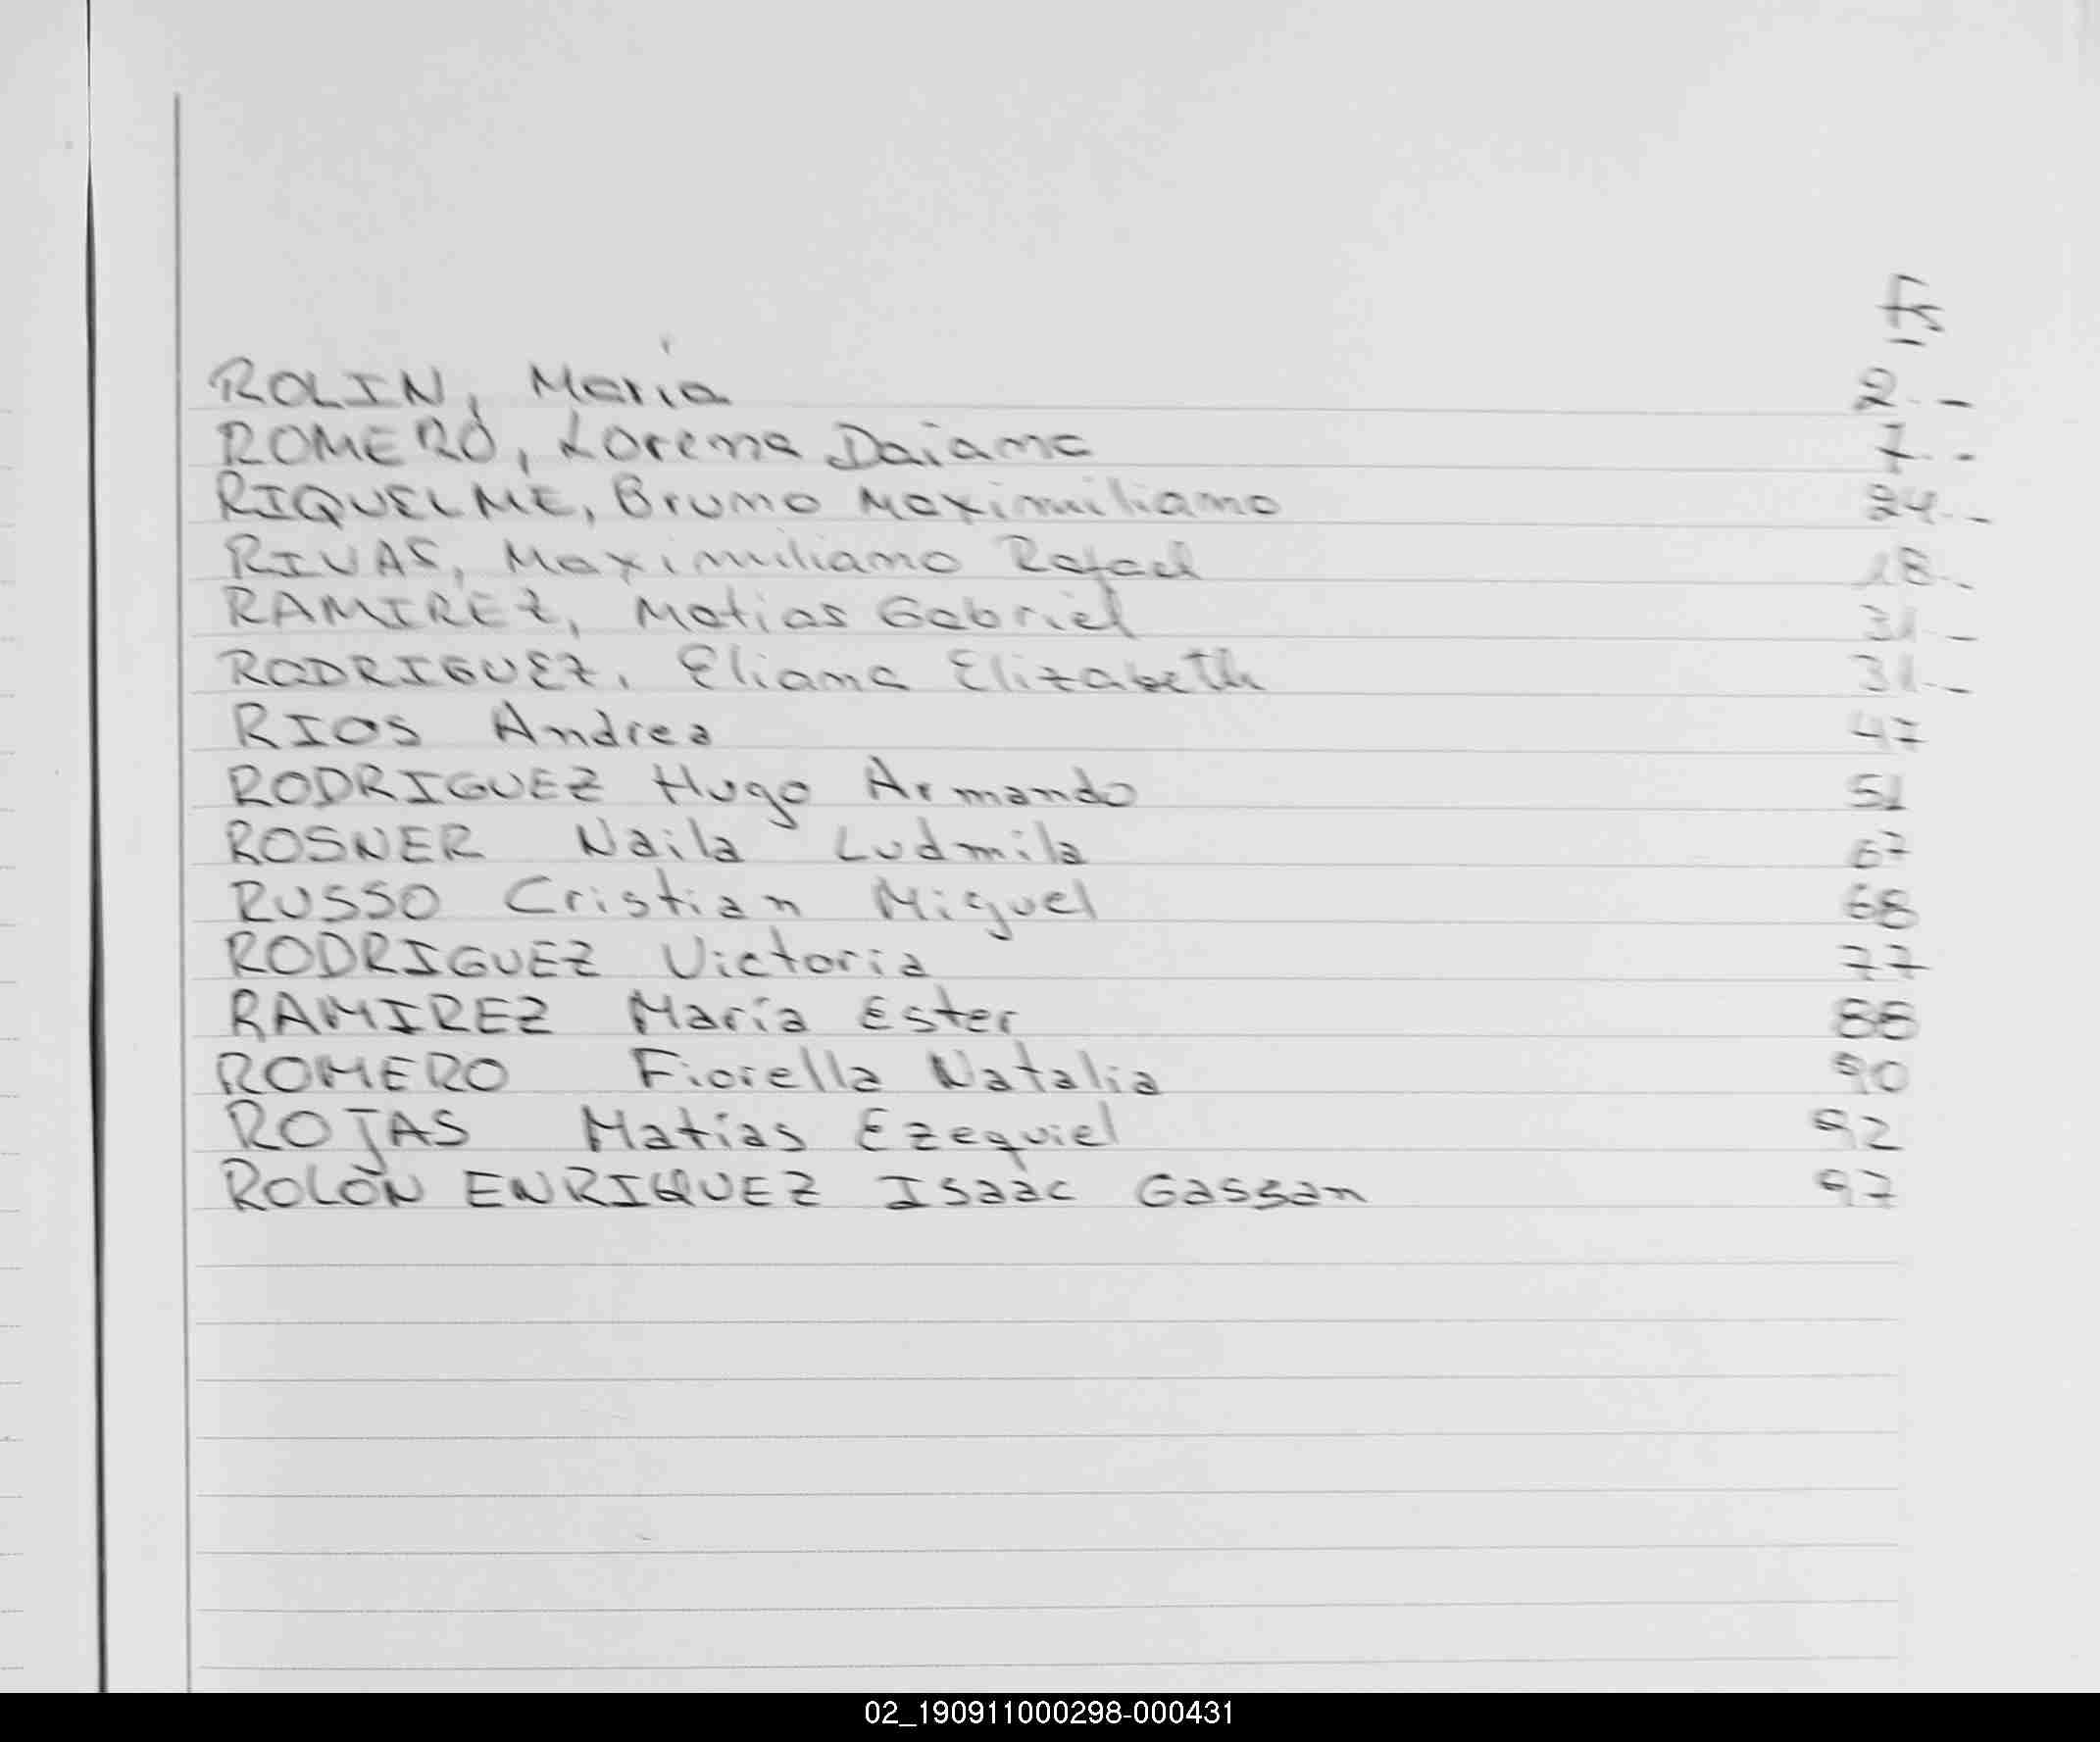 Fs
ROLIN, María 2.-
ROMERO, Lorena Daiana 7.-
RIQUELME, Bruno Maximiliano 24.-
RIVAS, Maximiliano Rafael 18.-
RAMIREZ, Matias Gabriel 31.-
RODRIGUEZ, Eliana Elizabeth 31.-
RIOS Andrea 47
RODRIGUEZ Hugo Armando 51
ROSNER Naila Ludmila 67
RUSSO Cristian Miguel 68
RODRIGUEZ Victoria 77
RAMIREZ María Ester 88
ROMERO Fiorella Natalia 90
ROJAS Matías Ezequiel 92
ROLÓN ENRIQUEZ Isaac Gassan 97
02_190911000298-000431